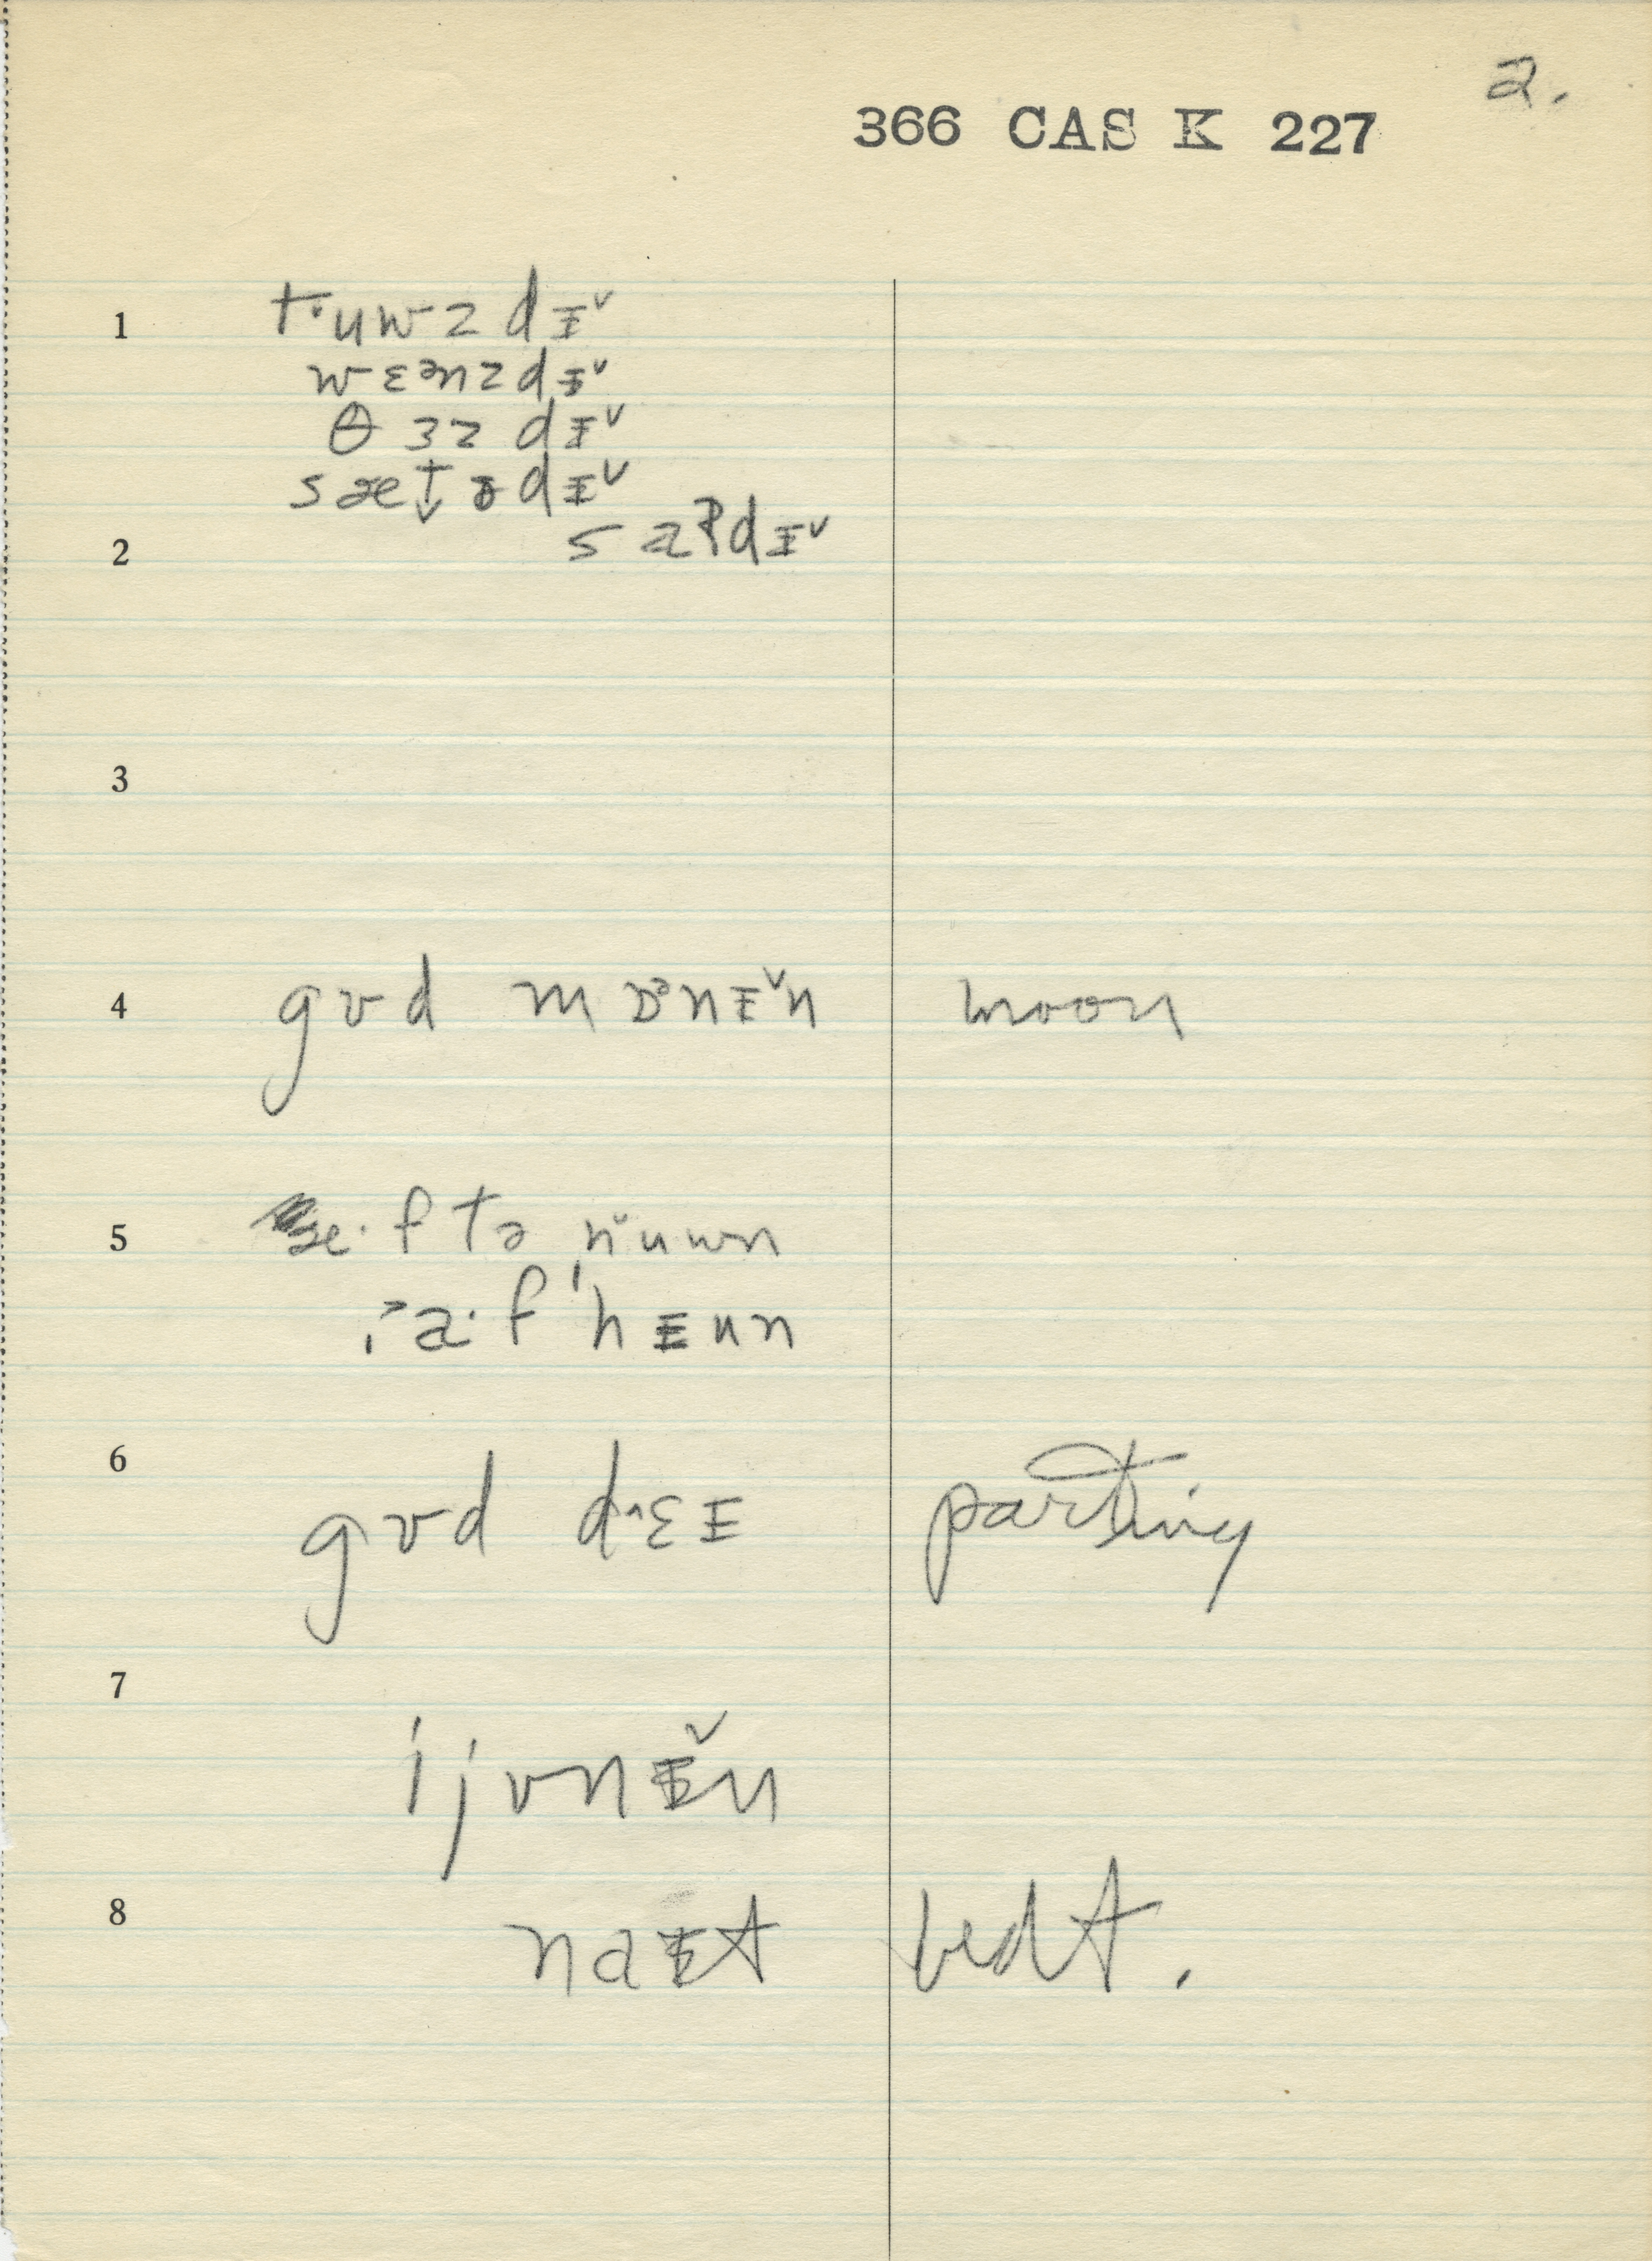 2.
366 CAS K 227
1 t·uwzdɪˇ
wɛənzdɪˇ
θɜzdɪˇ
sætədɪˇ
2 saʔdɪˇ
3
4 gʊd mɒᵊnɪˇn moon
5 æ·ftə nˇuwn
a·f'nɪun
6 gʊd d˄ɛɪ parting
7
ijvnɪˇn
8 naɪt bedt.